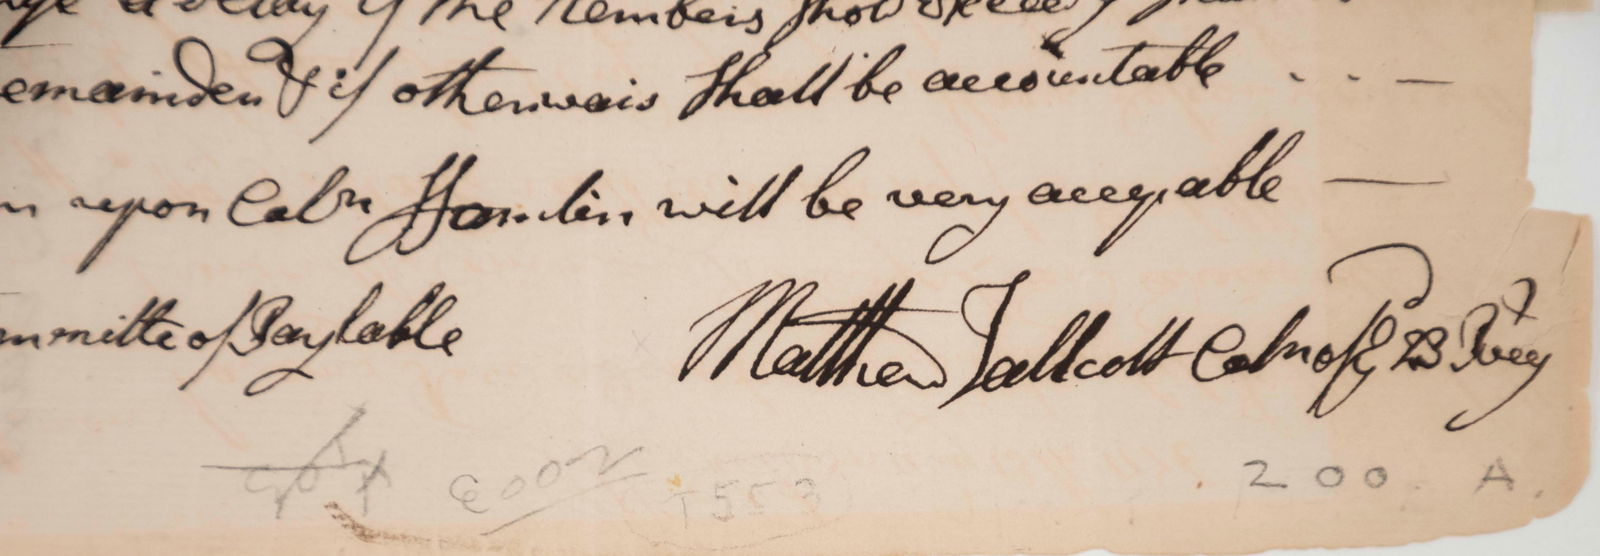 a Delay if the Members shold exceed
emainder & if otherwais shall be accountable . . . —
n upon Colⁿ Hamlin will be very accepable —
mmitte of Paytable
Matthew Tallcott Colⁿ of yᵉ 23 Regᵗ
200 A.